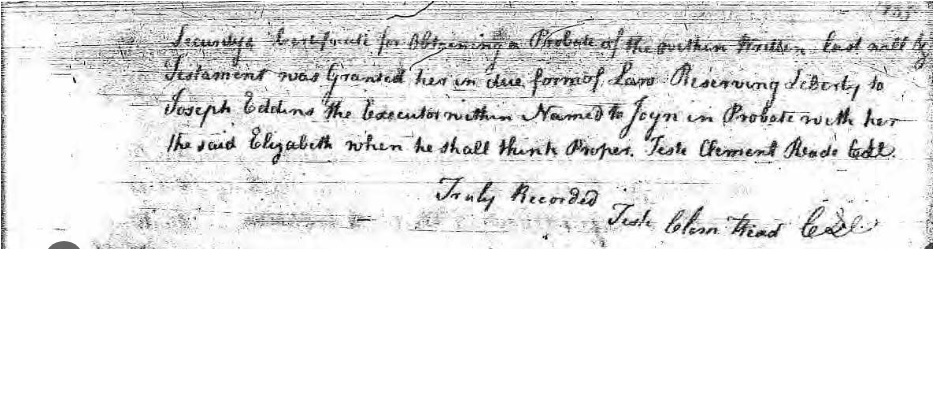 155
Securitys Certificate for Obtaining a Probate of the within Written Last will &
Testament was Granted her in due form of Law Reserving Liberty to
Joseph Eddins the Executor within Named to Joyn in Probate with her
the said Elizabeth when he shall think Proper. Teste Clement Reade
Truly Recorded
Teste Clem Read